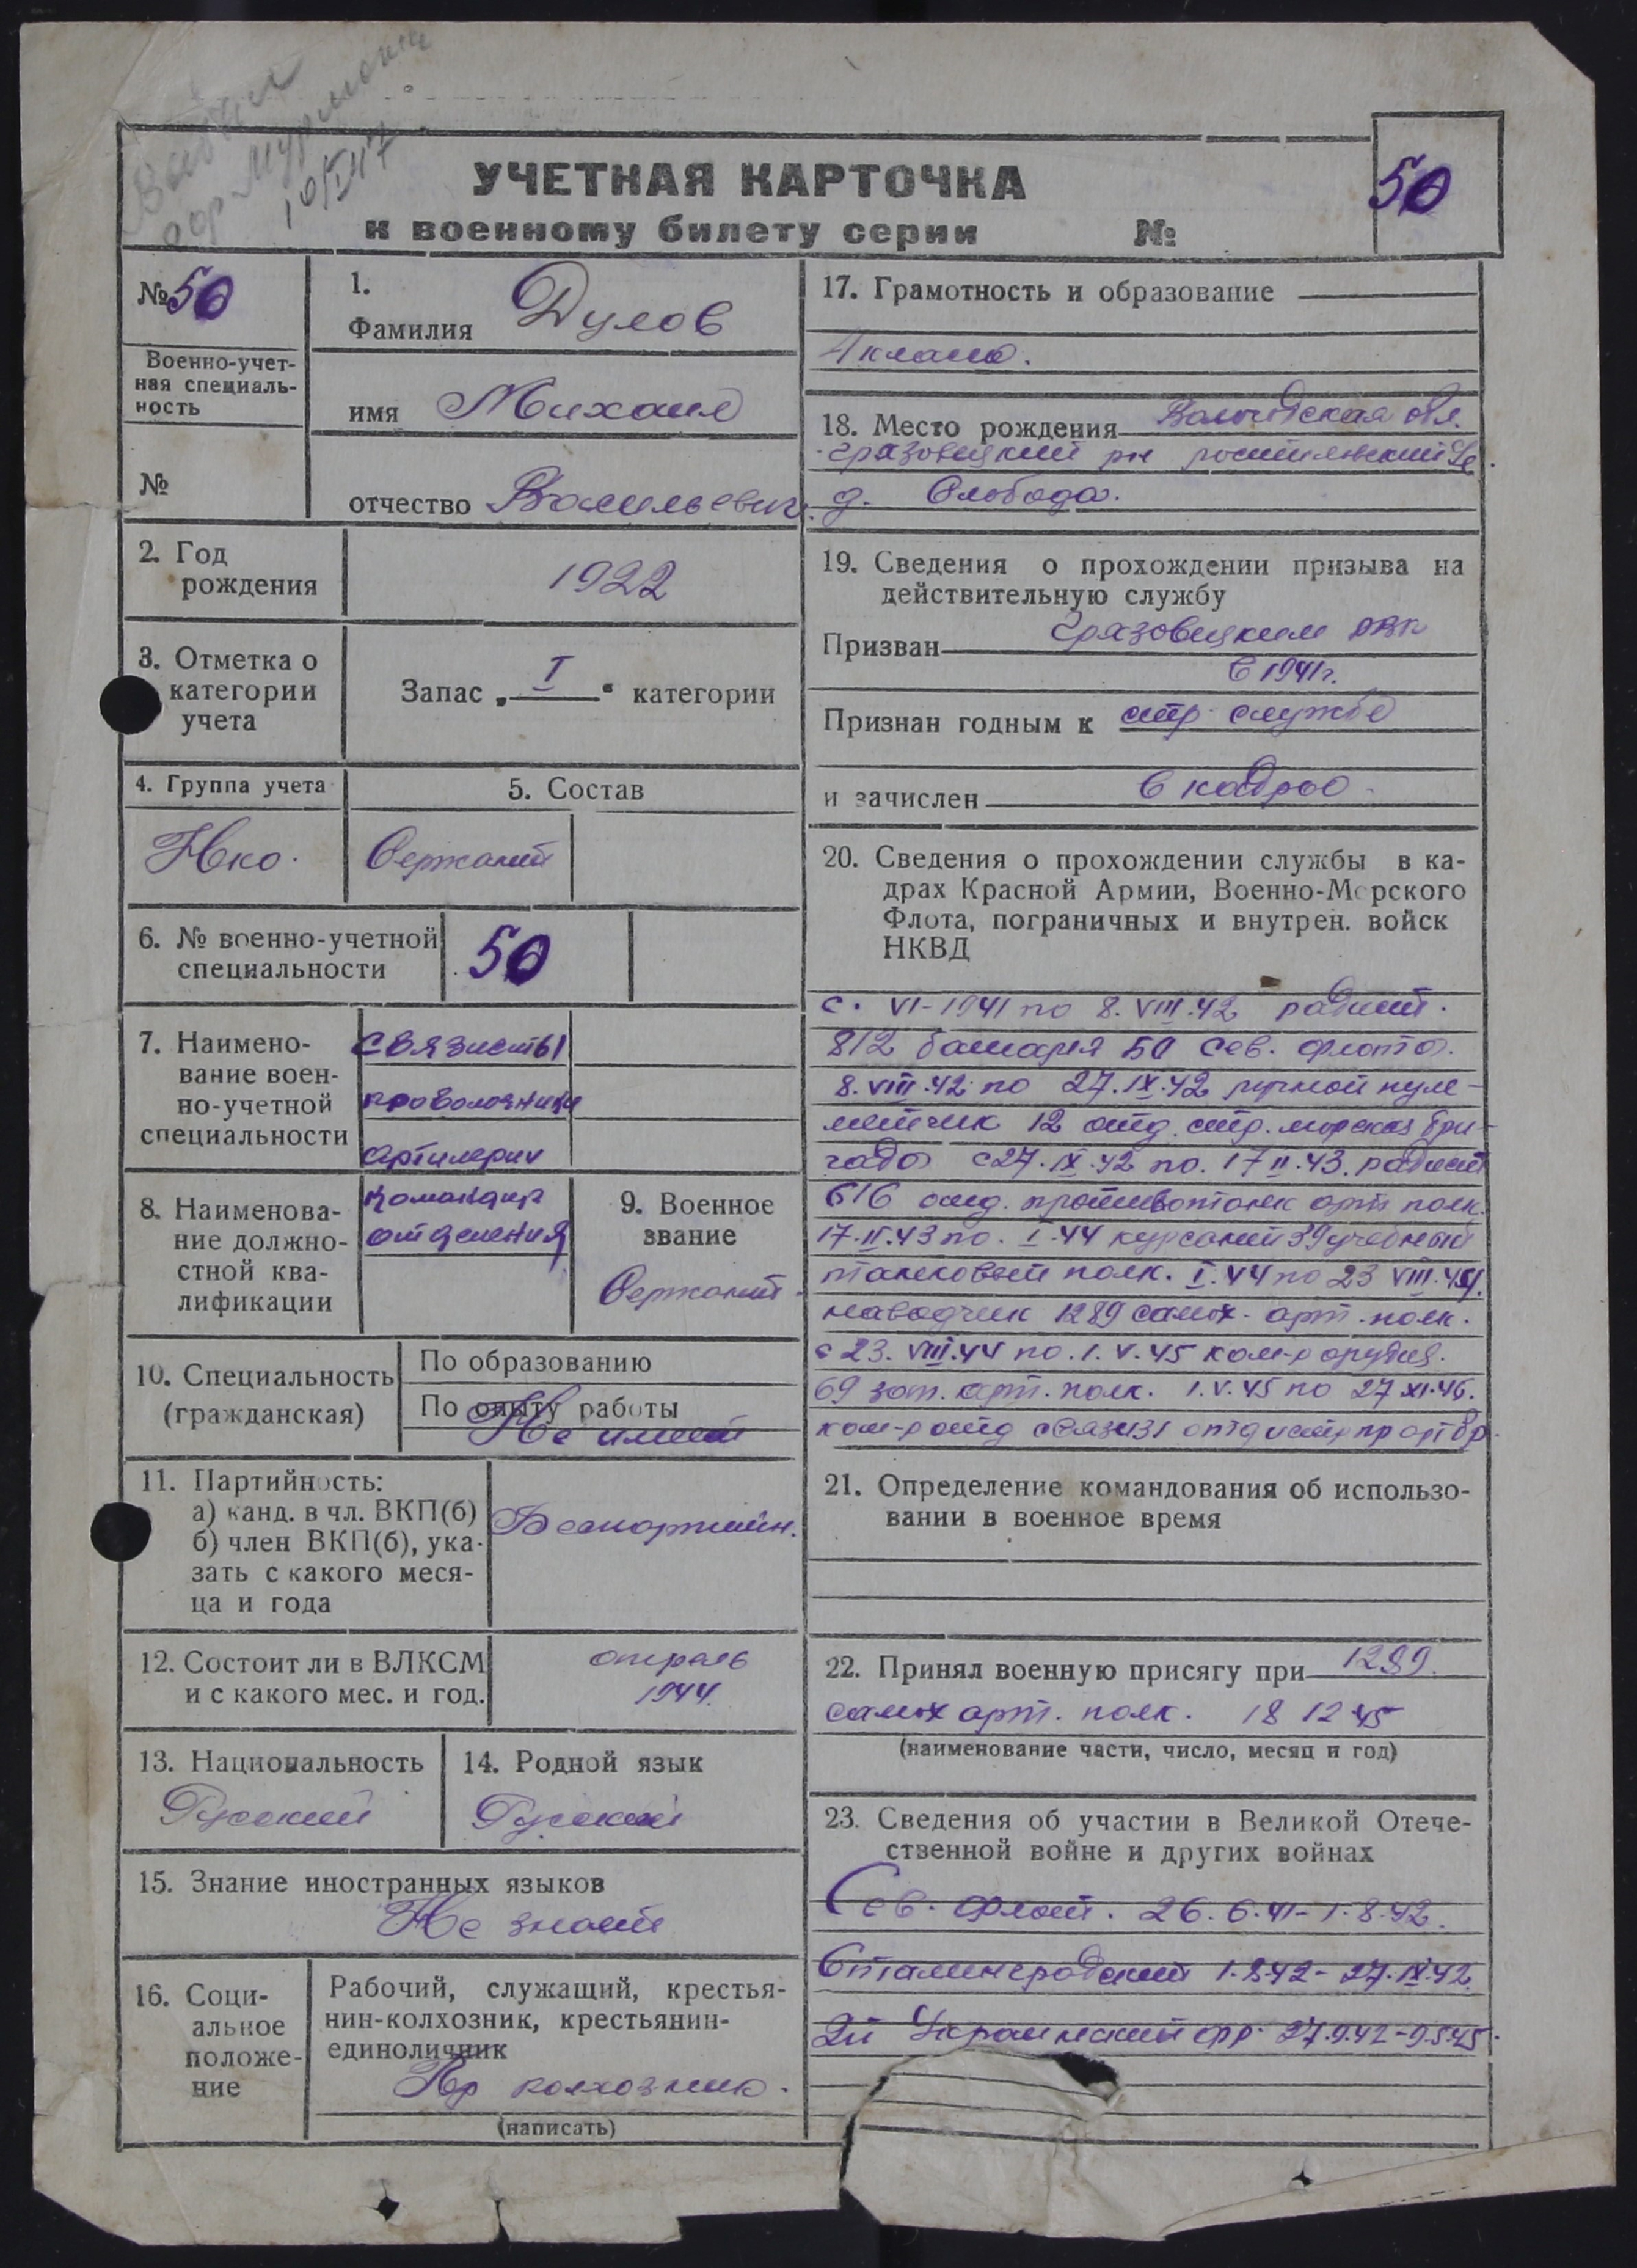 Выбыл
гор Мурманск
10/I 47
УЧЕТНАЯ КАРТОЧКА
к военному билету серии №
50
№ 50
Военно-учет-
ная специаль-
ность
№
1.
Фамилия Дулов
имя Михаил
отчество Васильевич.
2. Год
рождения
1922
3. Отметка о
категории
учета
Запас „ I “ категории
4. Группа учета
Нко.
5. Состав
Сержант
6. № военно-учетной
специальности
50
7. Наимено-
вание воен-
но-учетной
специальности
связисты
проволочники
артилерии
8. Наименова-
ние должно-
стной ква-
лификации
Командир
отделения
9. Военное
звание
Сержант
10. Специальность
(гражданская)
По образованию
По опыту работы
Не имеет
11. Партийность:
а) канд. в чл. ВКП(б)
б) член ВКП(б), ука-
зать с какого меся-
ца и года
Беспартийн.
12. Состоит ли в ВЛКСМ
и с какого мес. и год.
апрель
1944.
13. Национальность
Русский
14. Родной язык
Русский
15. Знание иностранных языков
Не знает
16. Соци-
альное
положе-
ние
Рабочий, служащий, крестья-
нин-колхозник, крестьянин-
единоличник
Кр колхозник.
(написать)
17. Грамотность и образование
4 класса.
18. Место рождения Вологодская обл.
Грязовецкий рн Ростиловский с/с.
д. Слобода.
19. Сведения о прохождении призыва на
действительную службу
Призван Грязовецким РВК
в 1941г.
Признан годным к стр службе
и зачислен в кадры
20. Сведения о прохождении службы в ка-
драх Красной Армии, Военно-Морского
Флота, пограничных и внутрен. войск
НКВД
с. VI-1941 по 8.VIII.42 радист.
812 батарея Сев. флота.
8.VIII.42 по 27.IX.42 ручной пуле-
метчик 12 отд. стр. морская бри-
гада с 27.IX.42 по. 17 II.43. радист
616 отд. противотанк арт полк.
17.II.43 по. I.44 курсант 39 учебный
танковый полк. I.44 по 23 VIII.44.
наводчик 1289 самох. арт. полк.
с 23.VIII.44 по. 1.V.45 ком-р орудия.
69 зап. арт. полк. 1.V.45 по 27 XI.46.
ком-р отд связи 31 отд истр пр арт бр.
21. Определение командования об использо-
вании в военное время
22. Принял военную присягу при 1289.
самох арт. полк. 18 12 45
(наименование части, число, месяц и год)
23. Сведения об участии в Великой Отече-
ственной войне и других войнах
Сев. Флот. 26.6.41-1.8.42.
Сталинградский 1.8.42-27.IX.42.
2й Украинский фр. 27.9.42-9.5.45.